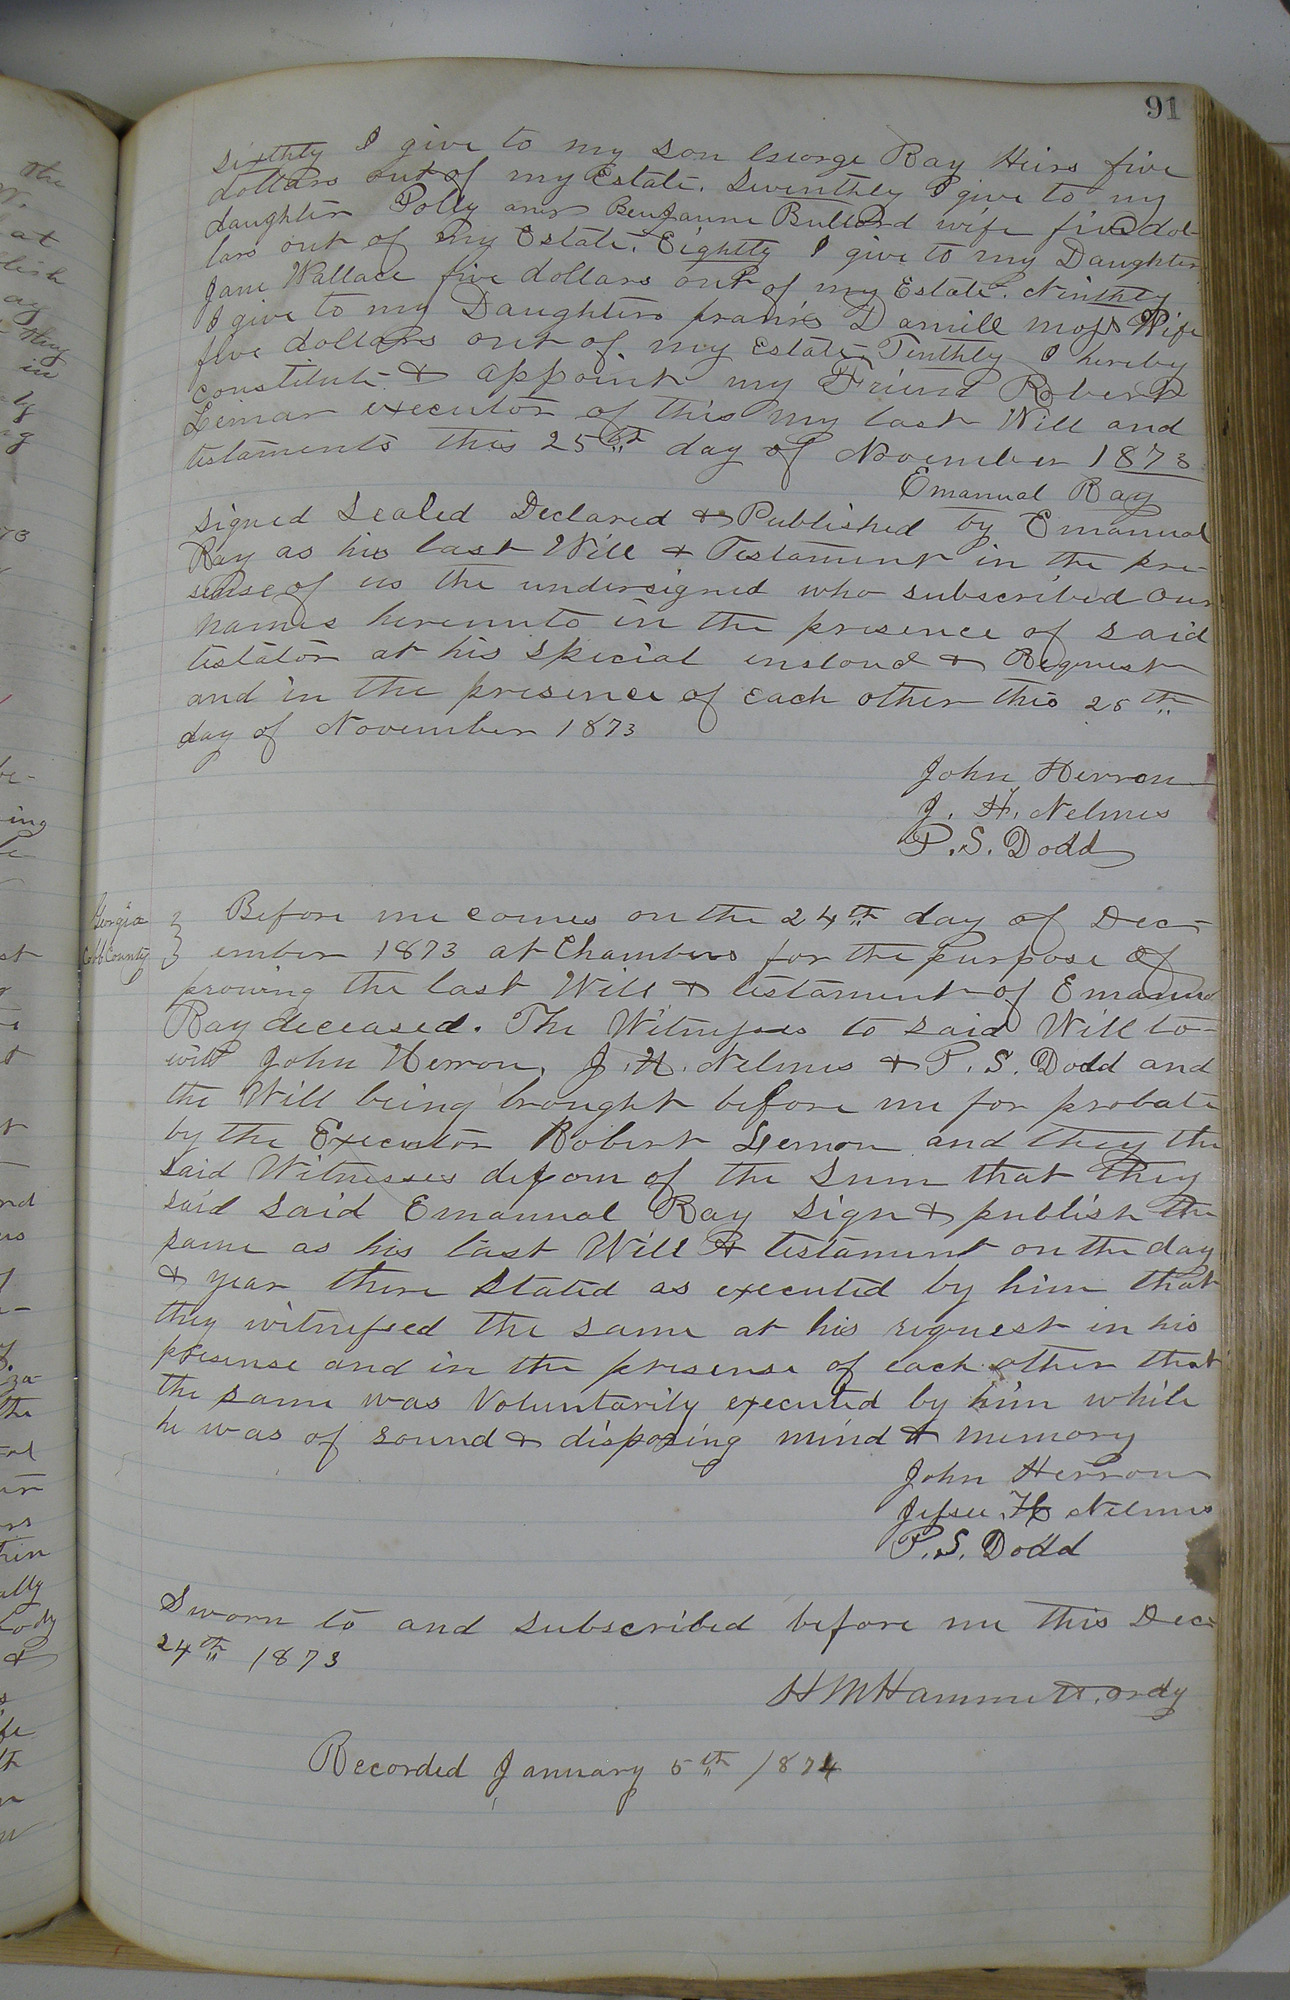 91
Sixthly I give to my Son George Ray Heirs five
dollars out of my Estate. Seventhly I give to my
daughter Polly Ann Benjamine Bullard wife five dol-
lars out of my Estate. Eightly I give to my Daughter
Jane Wallace five dollars out of my Estate. Ninthly
I give to my Daughters Daniell Moss Wife
five dollars out of my Estate. Tenthly I hereby
constitute & appoint my Friend Robert
Lemar executor of this my last Will and
testaments this 25th day of November 1873
Emanuel Ray
Signed Sealed Declared & Published by Emanuel
Ray as his last Will & Testament in the pre-
sense of us the undersigned who subscribed our
names hereunto in the presence of said
testator at his special & Request
and in the presence of each other this 25th
day of November 1873
John Herron
J. H. Nelmes
P. S. Dodd
Georgia
Cobb County
Before me comes on the 24th day of Dec-
ember 1873 at Chambers for the purpose of
proving the last Will & testament of Emanuel
Ray deceased. The Witnesses to said Will to-
wit John Herron, J. H. Nelmes & P. S. Dodd and
the Will being brought before me for probate
by the Executor Robert Lemon and they the
said Witnesses of the Sum that they
said said Emanual Ray sign & publish the
same as his last Will & testament on the day
& year there Stated as executed by him that
they witnessed the same at his request in his
presense and in the presense of each other that
the same was Voluntarily executed by him while
he was of sound & disposing mind & memory
John Herron
Jessee H Nelmes
P. S. Dodd
Sworn to and subscribed before me this Dec
24th 1873
H M Hammett, Ordy
Recorded January 5th 1874